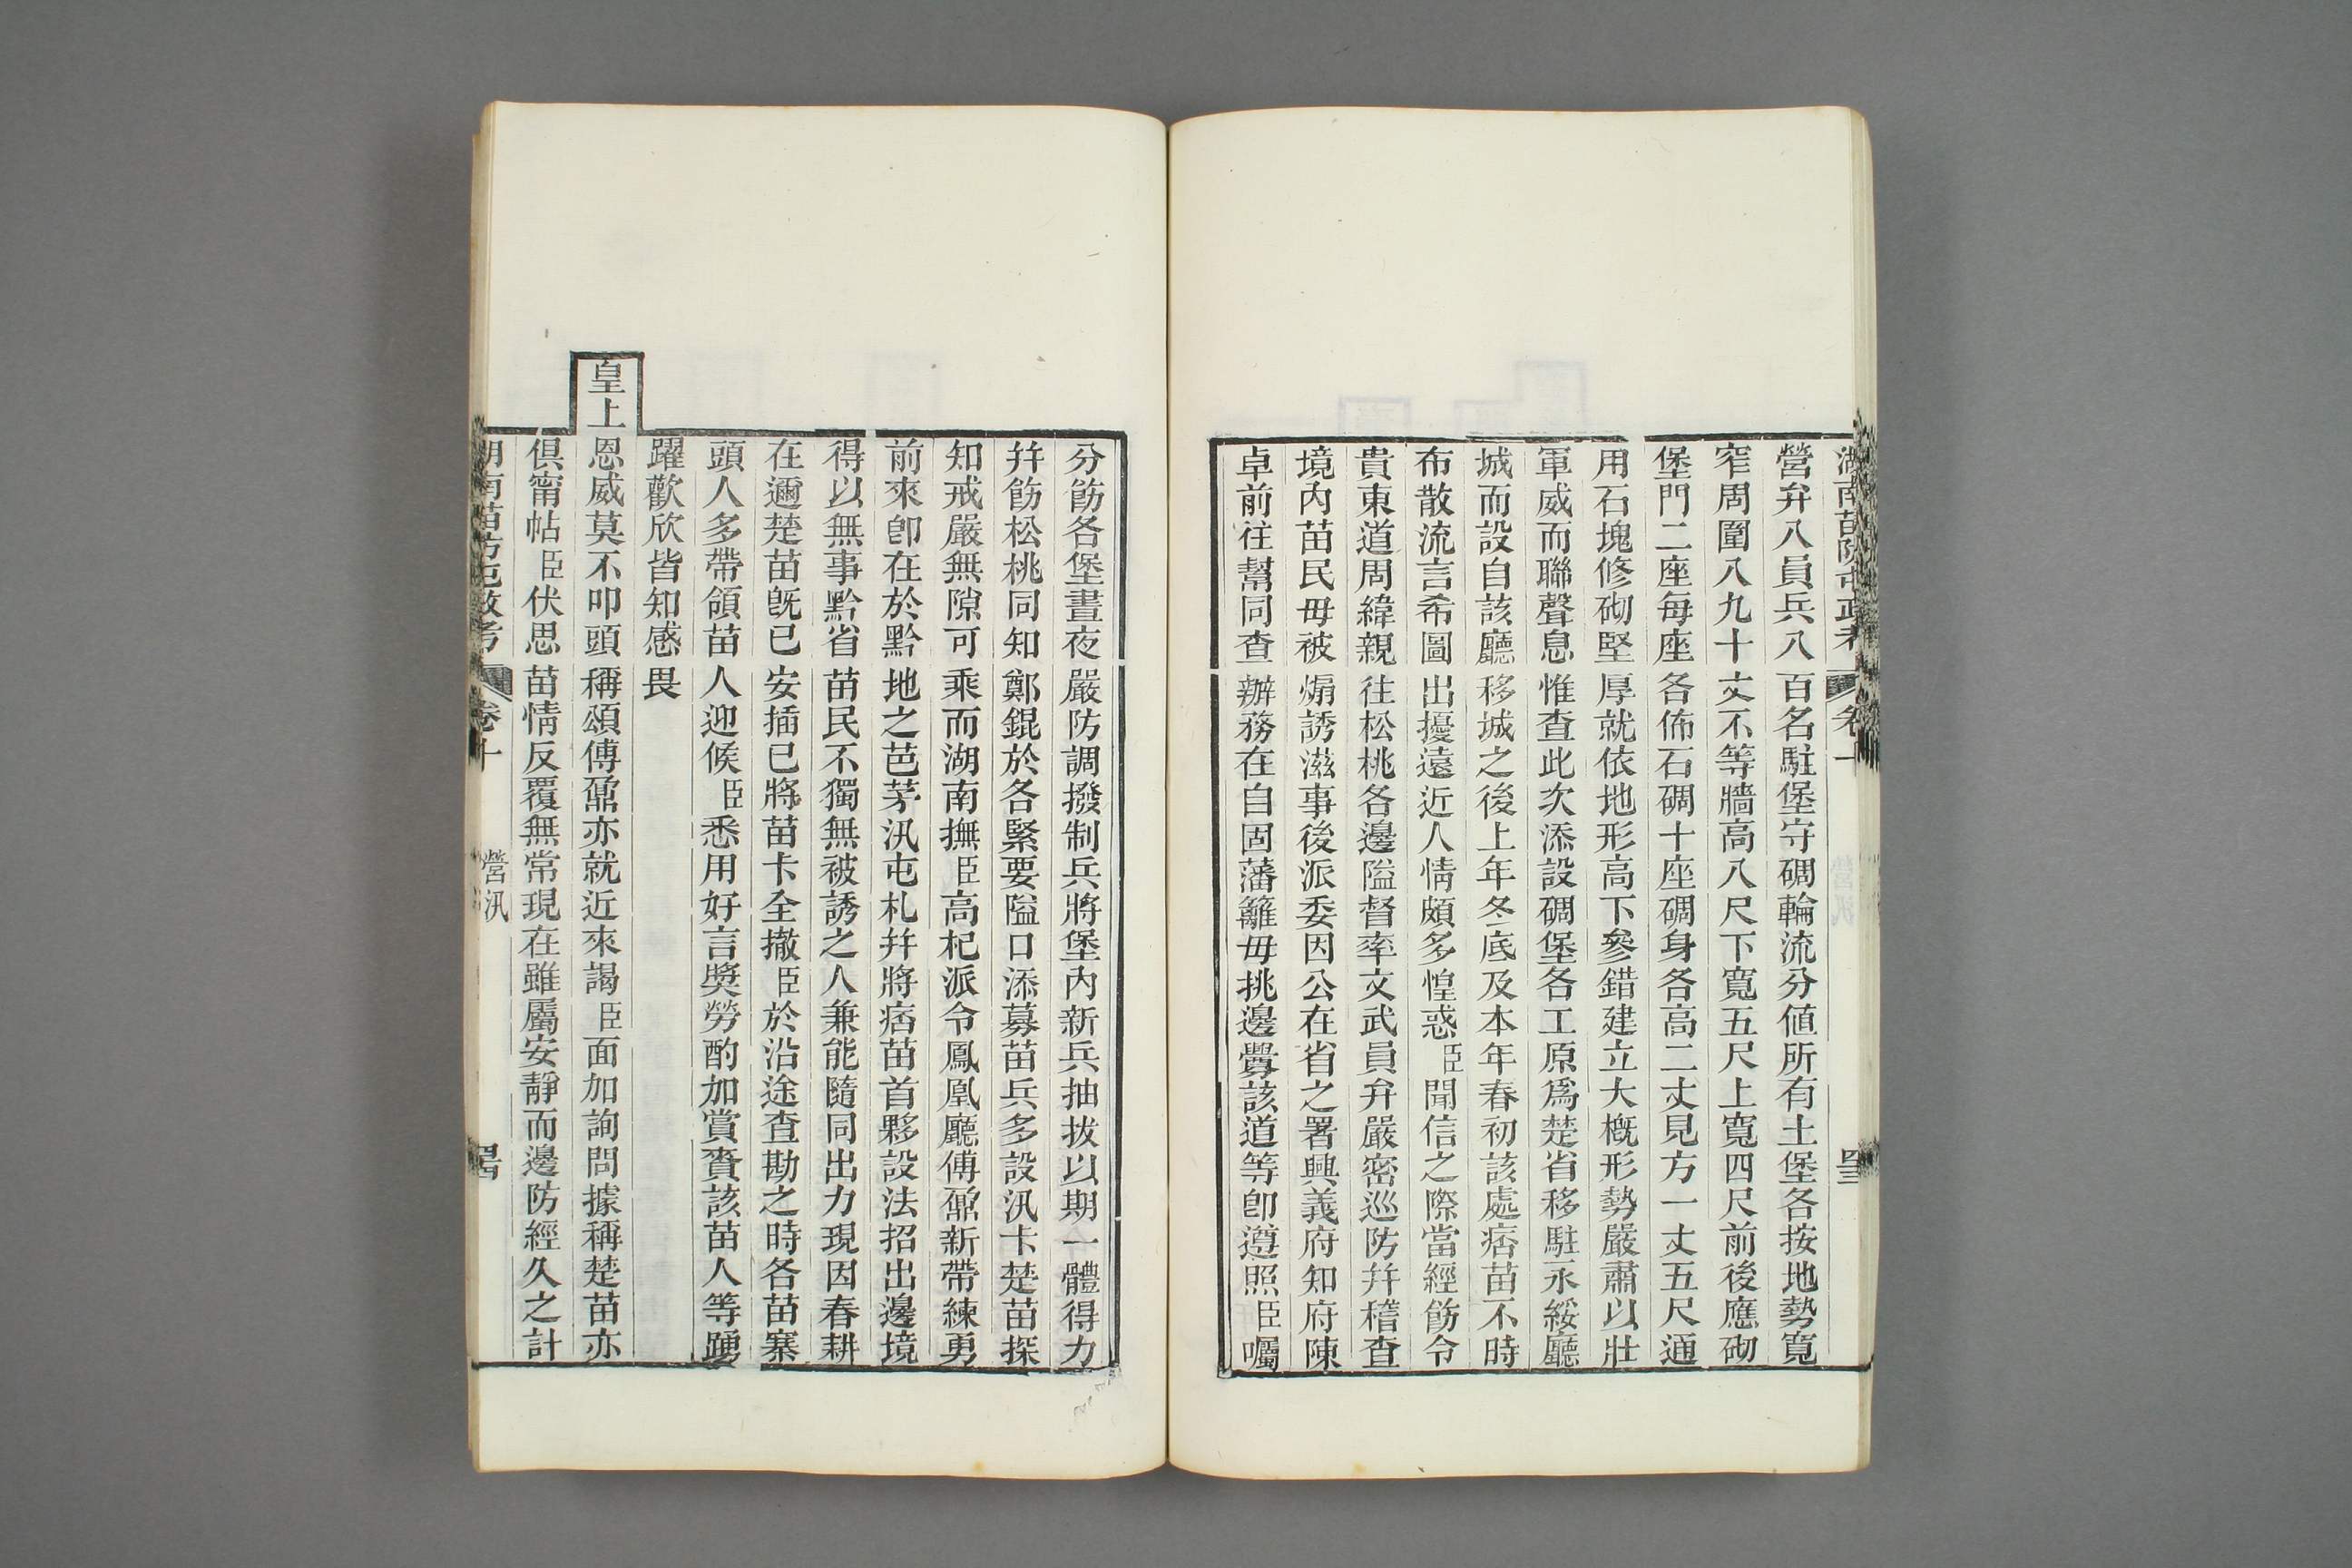 湖南苗防屯政考 卷十 四三
營弁八員兵八百名駐堡守碉輪流分値所有土堡各按地勢寬
窄周圍八九十丈不等牆高八尺下寬五尺上寬四尺前後應砌
堡門二座每座各佈石碉十座碉身各高二丈見方一丈五尺通
用石塊修砌堅厚就依地形高下參錯建立大槪形勢嚴肅以壯
軍威而聯聲息惟查此次添設碉堡各工原爲楚省移駐永綏廳
城而設自該廳移城之後上年冬底及本年春初該處痞苗不時
布散流言希圖出擾遠近人情頗多惶惑臣聞信之際當經飭令
貴東道周緯親往松桃各邊隘督率文武員弁嚴密巡防幷稽查
境內苗民毋被煽誘滋事後派委因公在省之署興義府知府陳
卓前往幫同查辦務在自固藩籬毋挑邊釁該道等卽遵照臣囑
分飭各堡晝夜嚴防調撥制兵將堡內新兵抽拔以期一體得力
幷飭松桃同知鄭錕於各緊要隘口添募苗兵多設汛卡楚苗探
知戒嚴無隙可乘而湖南撫臣高杞派令鳳凰廳傅鼐新帶練勇
前來卽在於黔地之芭茅汛屯札幷將痞苗首夥設法招出邊境
得以無事黔省苗民不獨無被誘之人兼能隨同出力現因春耕
在邇楚苗旣已安插已將苗卡全撤臣於沿途查勘之時各苗寨
頭人多帶領苗人迎候臣悉用好言獎勞酌加賞賚該苗人等踴
躍歡欣皆知感畏
皇上恩威莫不叩頭稱頌傅鼐亦就近來謁臣面加詢問據稱楚苗亦
俱甯帖臣伏思苗情反覆無常現在雖屬安靜而邊防經久之計
湖南苗防屯政考 卷十 營汛 四